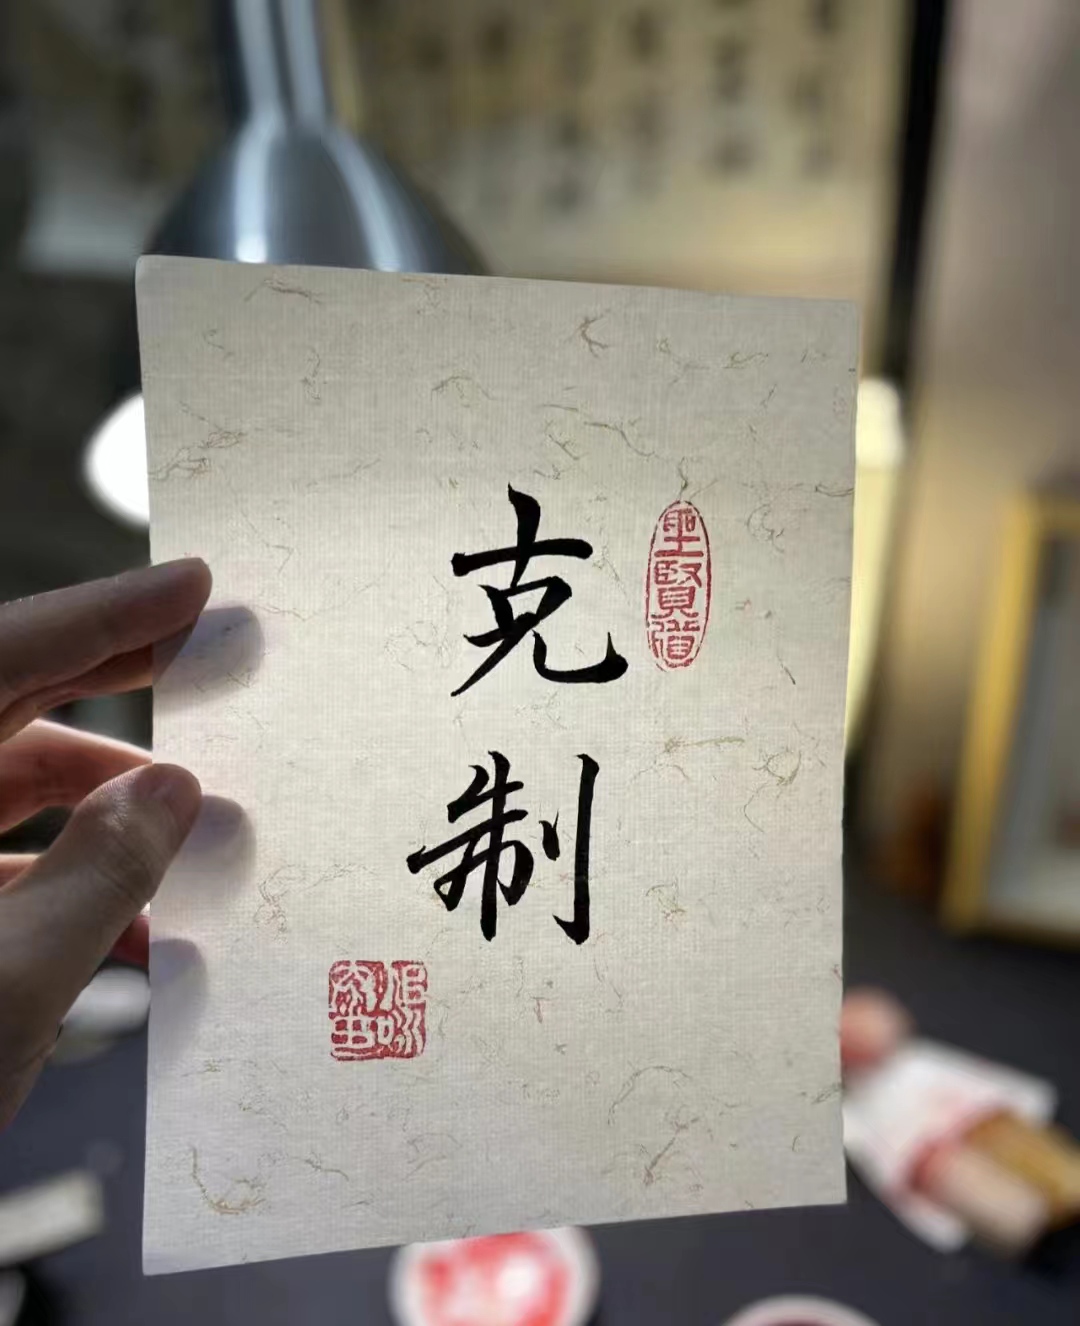 克
制
聖賢道